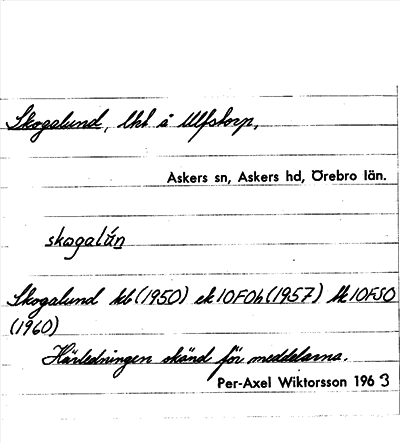 Skogalund, lht å Ulfstorp,
Askers sn, Askers hd, Örebro län.
skogalún
Skogalund kb (1950) ek 10F0h (1957) tk 10FSO
(1960)
Härledningen okänd för meddelarna.
Per-Axel Wiktorsson 1963